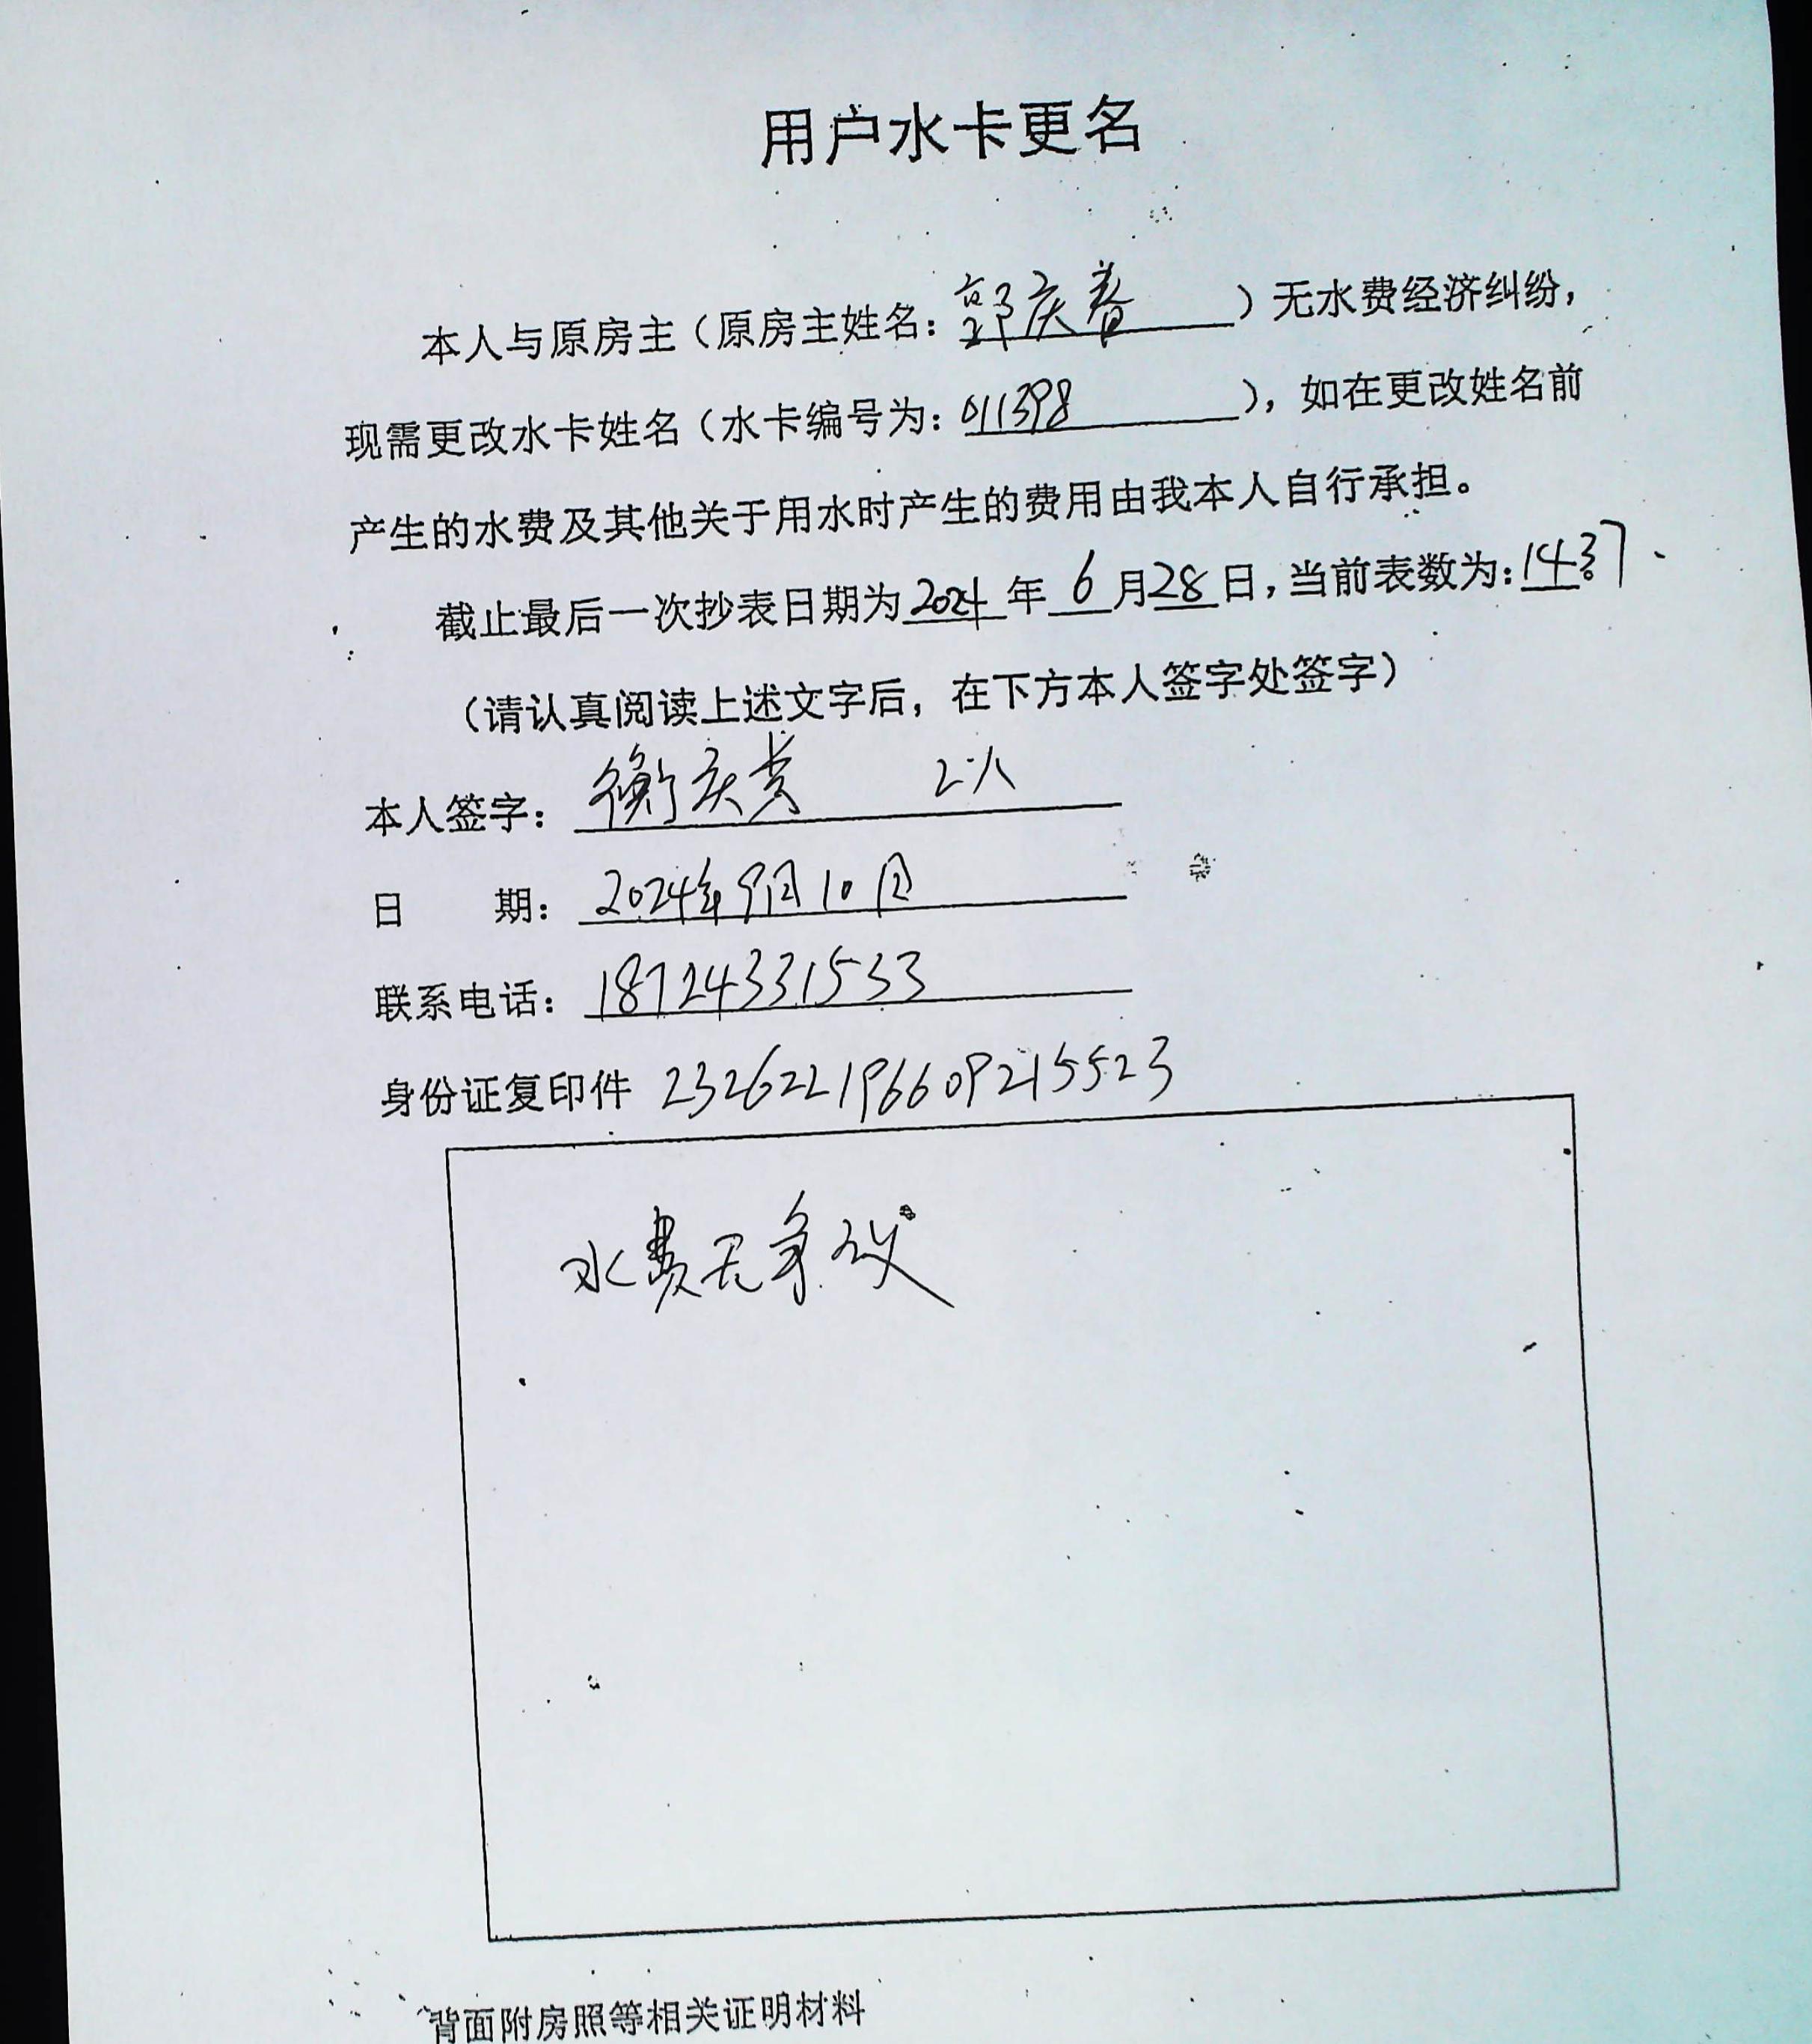 用户水卡更名
本人与原房主（原房主姓名：郭庆春）无水费经济纠纷，
现需更改水卡姓名（水卡编号为：011398），如在更改姓名前
产生的水费及其他关于用水时产生的费用由我本人自行承担。
截止最后一次抄表日期为2024年6月28日，当前表数为：1437
（请认真阅读上述文字后，在下方本人签字处签字）
本人签字：衡庆 2人
日 期：2024年9月10日
联系电话：18724331533
身份证复印件 232622196609215523
水费无争议
背面附房照等相关证明材料